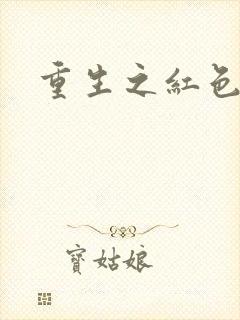 重生之紅色
寶姑娘